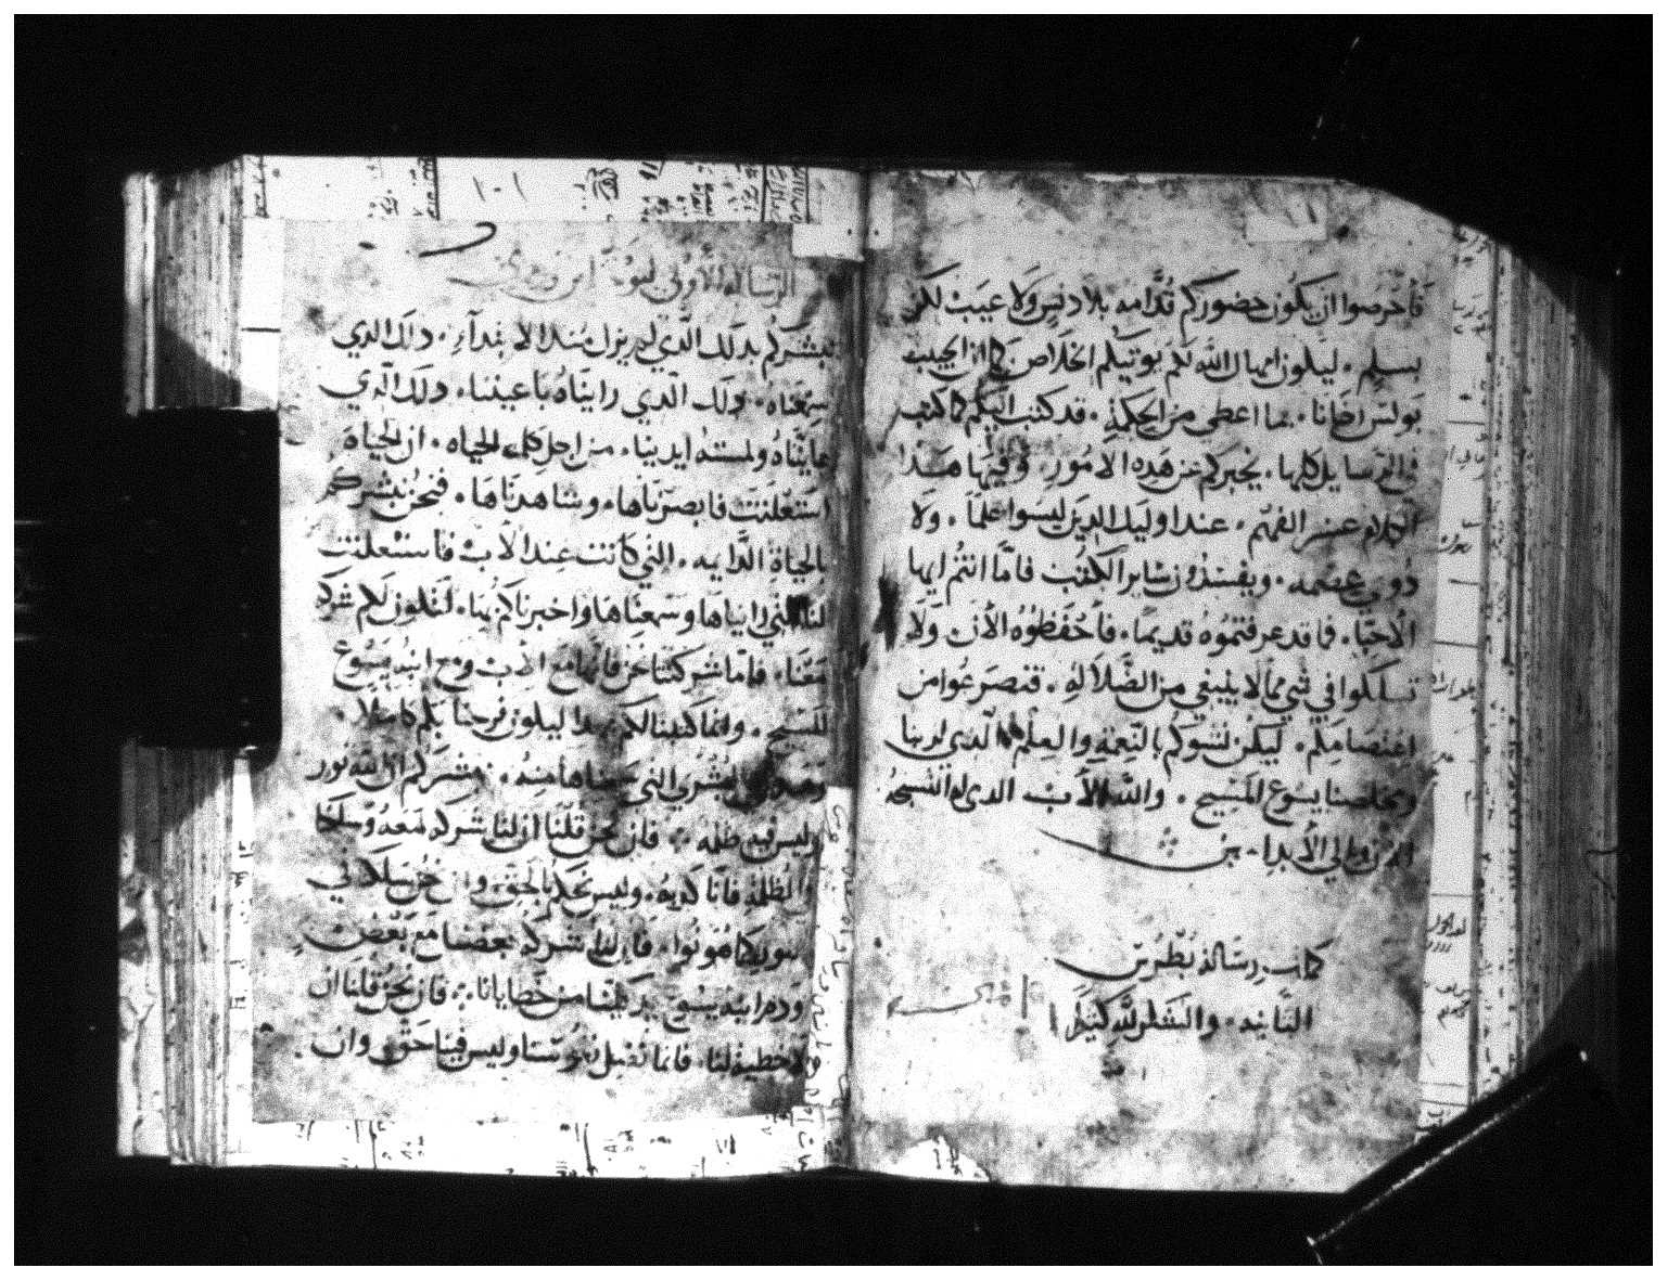 فأحرصوا ان يكون حضوركم قدامه بلا دنس ولا عيب لكن
بسلم . ليكون امهال الله لكم بوتيكم الخلاص كما ان الحبيب
بولس اخانا . بما اعطى من الحكمة . قد كتب اليكم كما كتب
في الرسايل كلها . يخبركم عن هده الامور . وفيها هدا
الكلام عسر الفهم . عند اوليك الدين ليسوا علما . ولا
دوي عصمه . ويفسدون ساير الكتب فاما انتم ايها
الاحبا . فما قد عرفتموه قديما . فأحفظوه الأن ولا
تسلكوا في شي مما لا ينبغي من الضلاله . فتصرعوا من
اعتصامكم . ليكن نشوكم بالنعمة والعلم الدي لربنا
ومخلصنا يسوع المسيح . والله الأب الدي له التسبحه
الان والي الأبد .
كملت رسالة بطرس
التانيه . والشكر لله كتيرا
١٠١
الرساله الأولى ليوحنا ابن
نبشركم بدلك الدي لم يزل مند الابتدآء . دلك الدي
سمعناه . دلك الدي رايناه باعيننا . دلك الدي
عايناه ولمسته ايدينا . من اجل كلمة الحياه . ان الحياة
استعلنت فابصرناها . وشاهدناها . فنحن نبشركم
بالحياة الدايمه . التي كانت عند الأب فاستعلنت
لنا التي رايناها وسمعناها واخبرناكم بها . لتكون لكم شركه
معنا . فاما شركتنا نحن فانها مع الأب ومع ابنه يسوع
المسيح . وانما كتبنا لكم بهدا ليكون فرحنا بكم كاملا .
وهده البشري التي سمعناها منه . نبشركم ان الله نور
وليس فيه ظلمه . فان نحن قلنا ان لنا شركه معه وسلكنا
الظلمة فانا كدبه . وليس نحكم بالحق وان نحن سلكنا في
النور كما هو نور . فان لنا شركه بعضنا مع بعض
ودم ابنه يسوع يزكينا من خطايانا . فان نحن قلنا ان
لا خطية لنا . فانما نضل نفوسنا وليس فينا حق وان